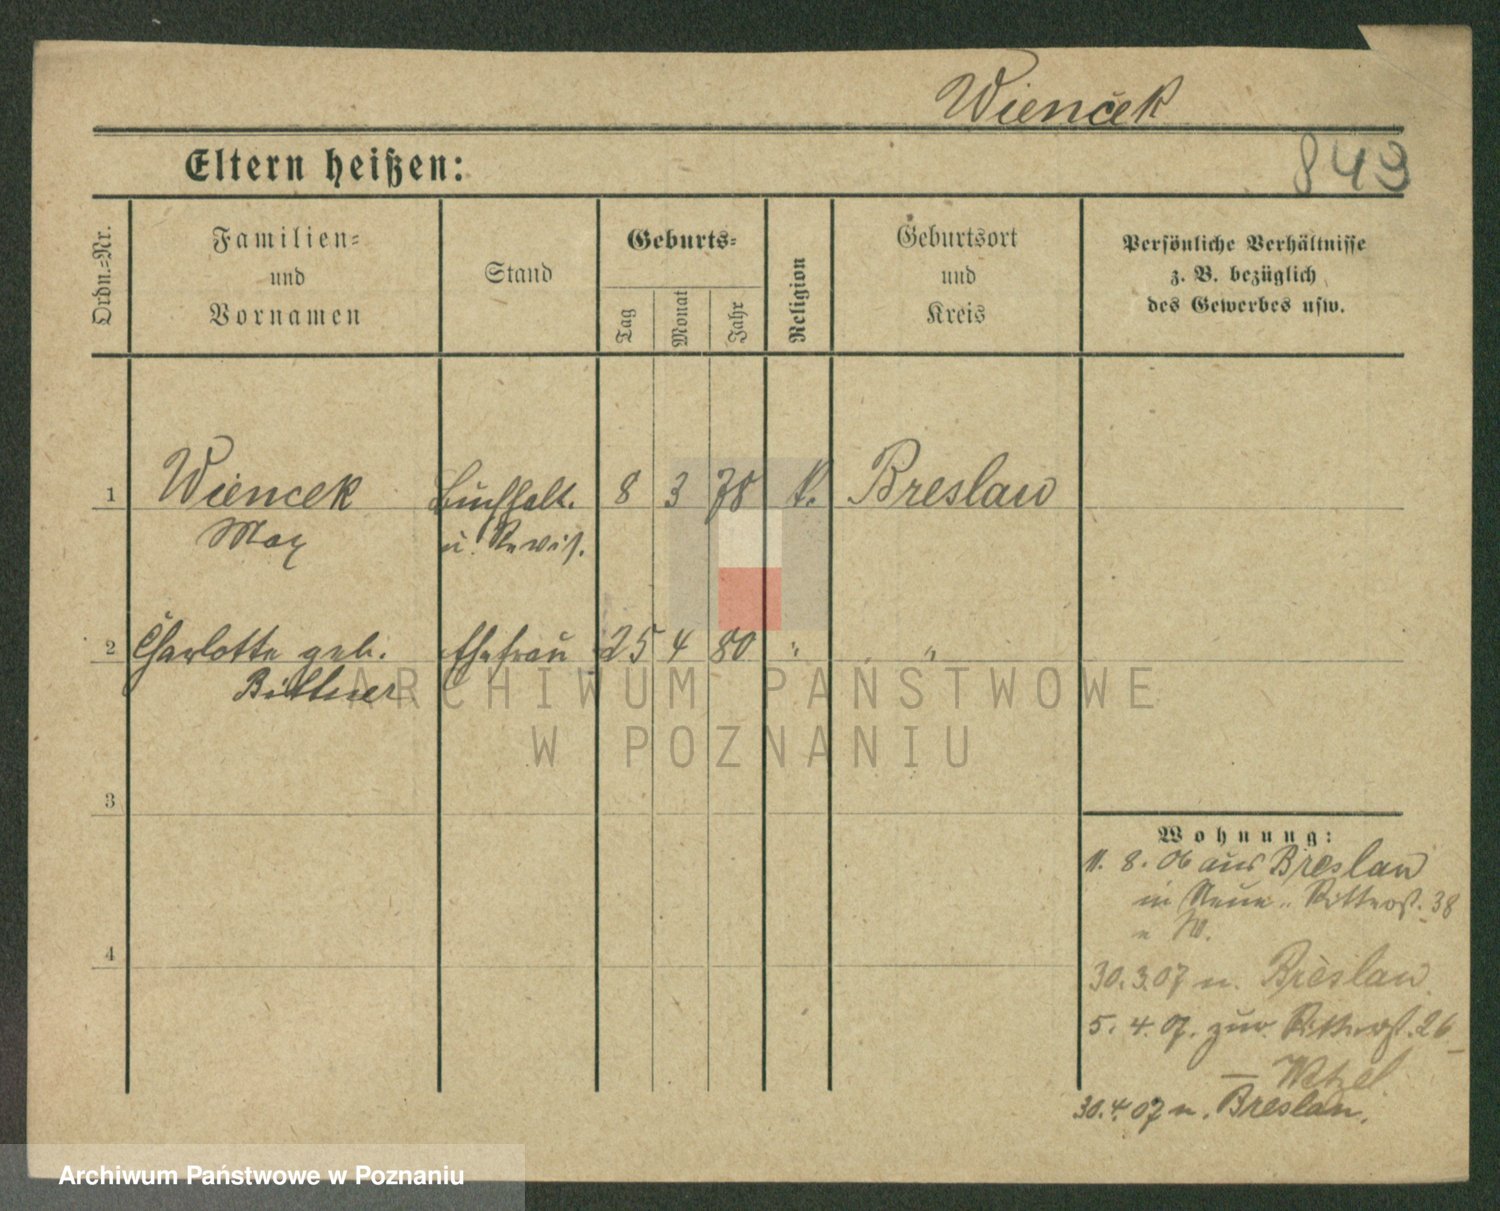 Wiencek
849
Eltern heißen:
Ordn.-Nr.
Familien-
und
Vornamen
Stand
Geburts-
Tag
Monat
Jahr
Religion
Geburtsort
und
Kreis
Persönliche Verhältnisse
z. B. bezüglich
des Gewerbes usw.
1 Wiencek Buchhalt. 8 3 78 k. Breslau
Max u. Revis.
2 Charlotte geb. Ehefrau 25 4 80 " "
Bittner
ARCHIWUM PAŃSTWOWE
W POZNANIU
3
4
Wohnung:
11. 8. 06 aus Breslau
in Ritterst. 38
30.3.07 n. Breslau
5. 4. 07. zur. Ritterst. 26
— Wetzel
30.4.07 n. Breslau.
Archiwum Państwowe w Poznaniu